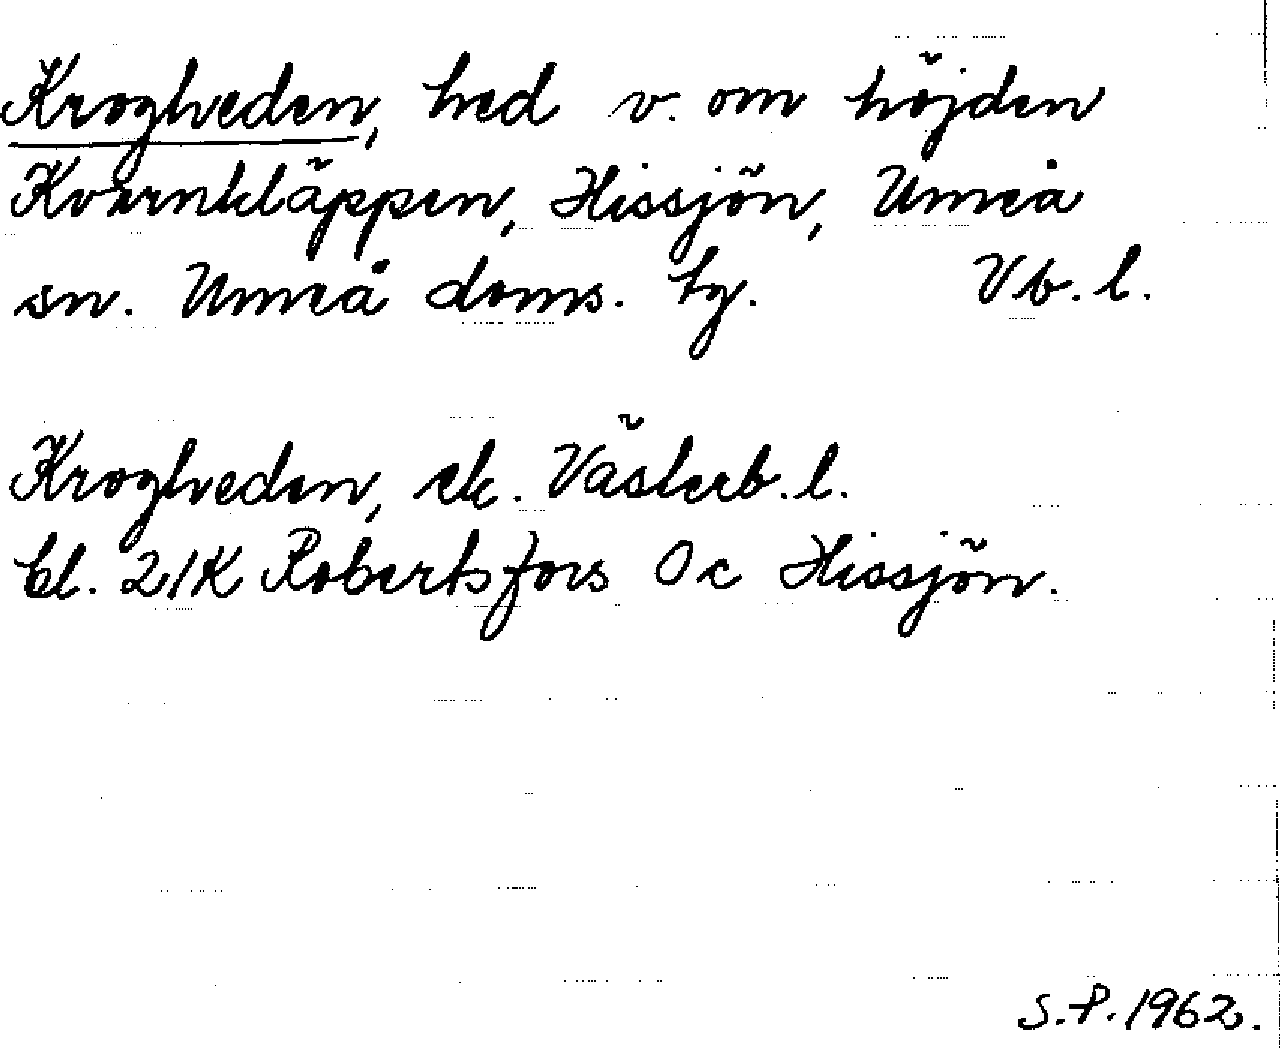 Krogheden, hed v. om höjden
Kvarnkläppen, Hissjön, Umeå
sn. Umeå doms. hg. Vb. l.
Krogheden, ek. Västerb. l.
bl. 21K Robertsfors Oc Hissjön.
S.P. 1962.